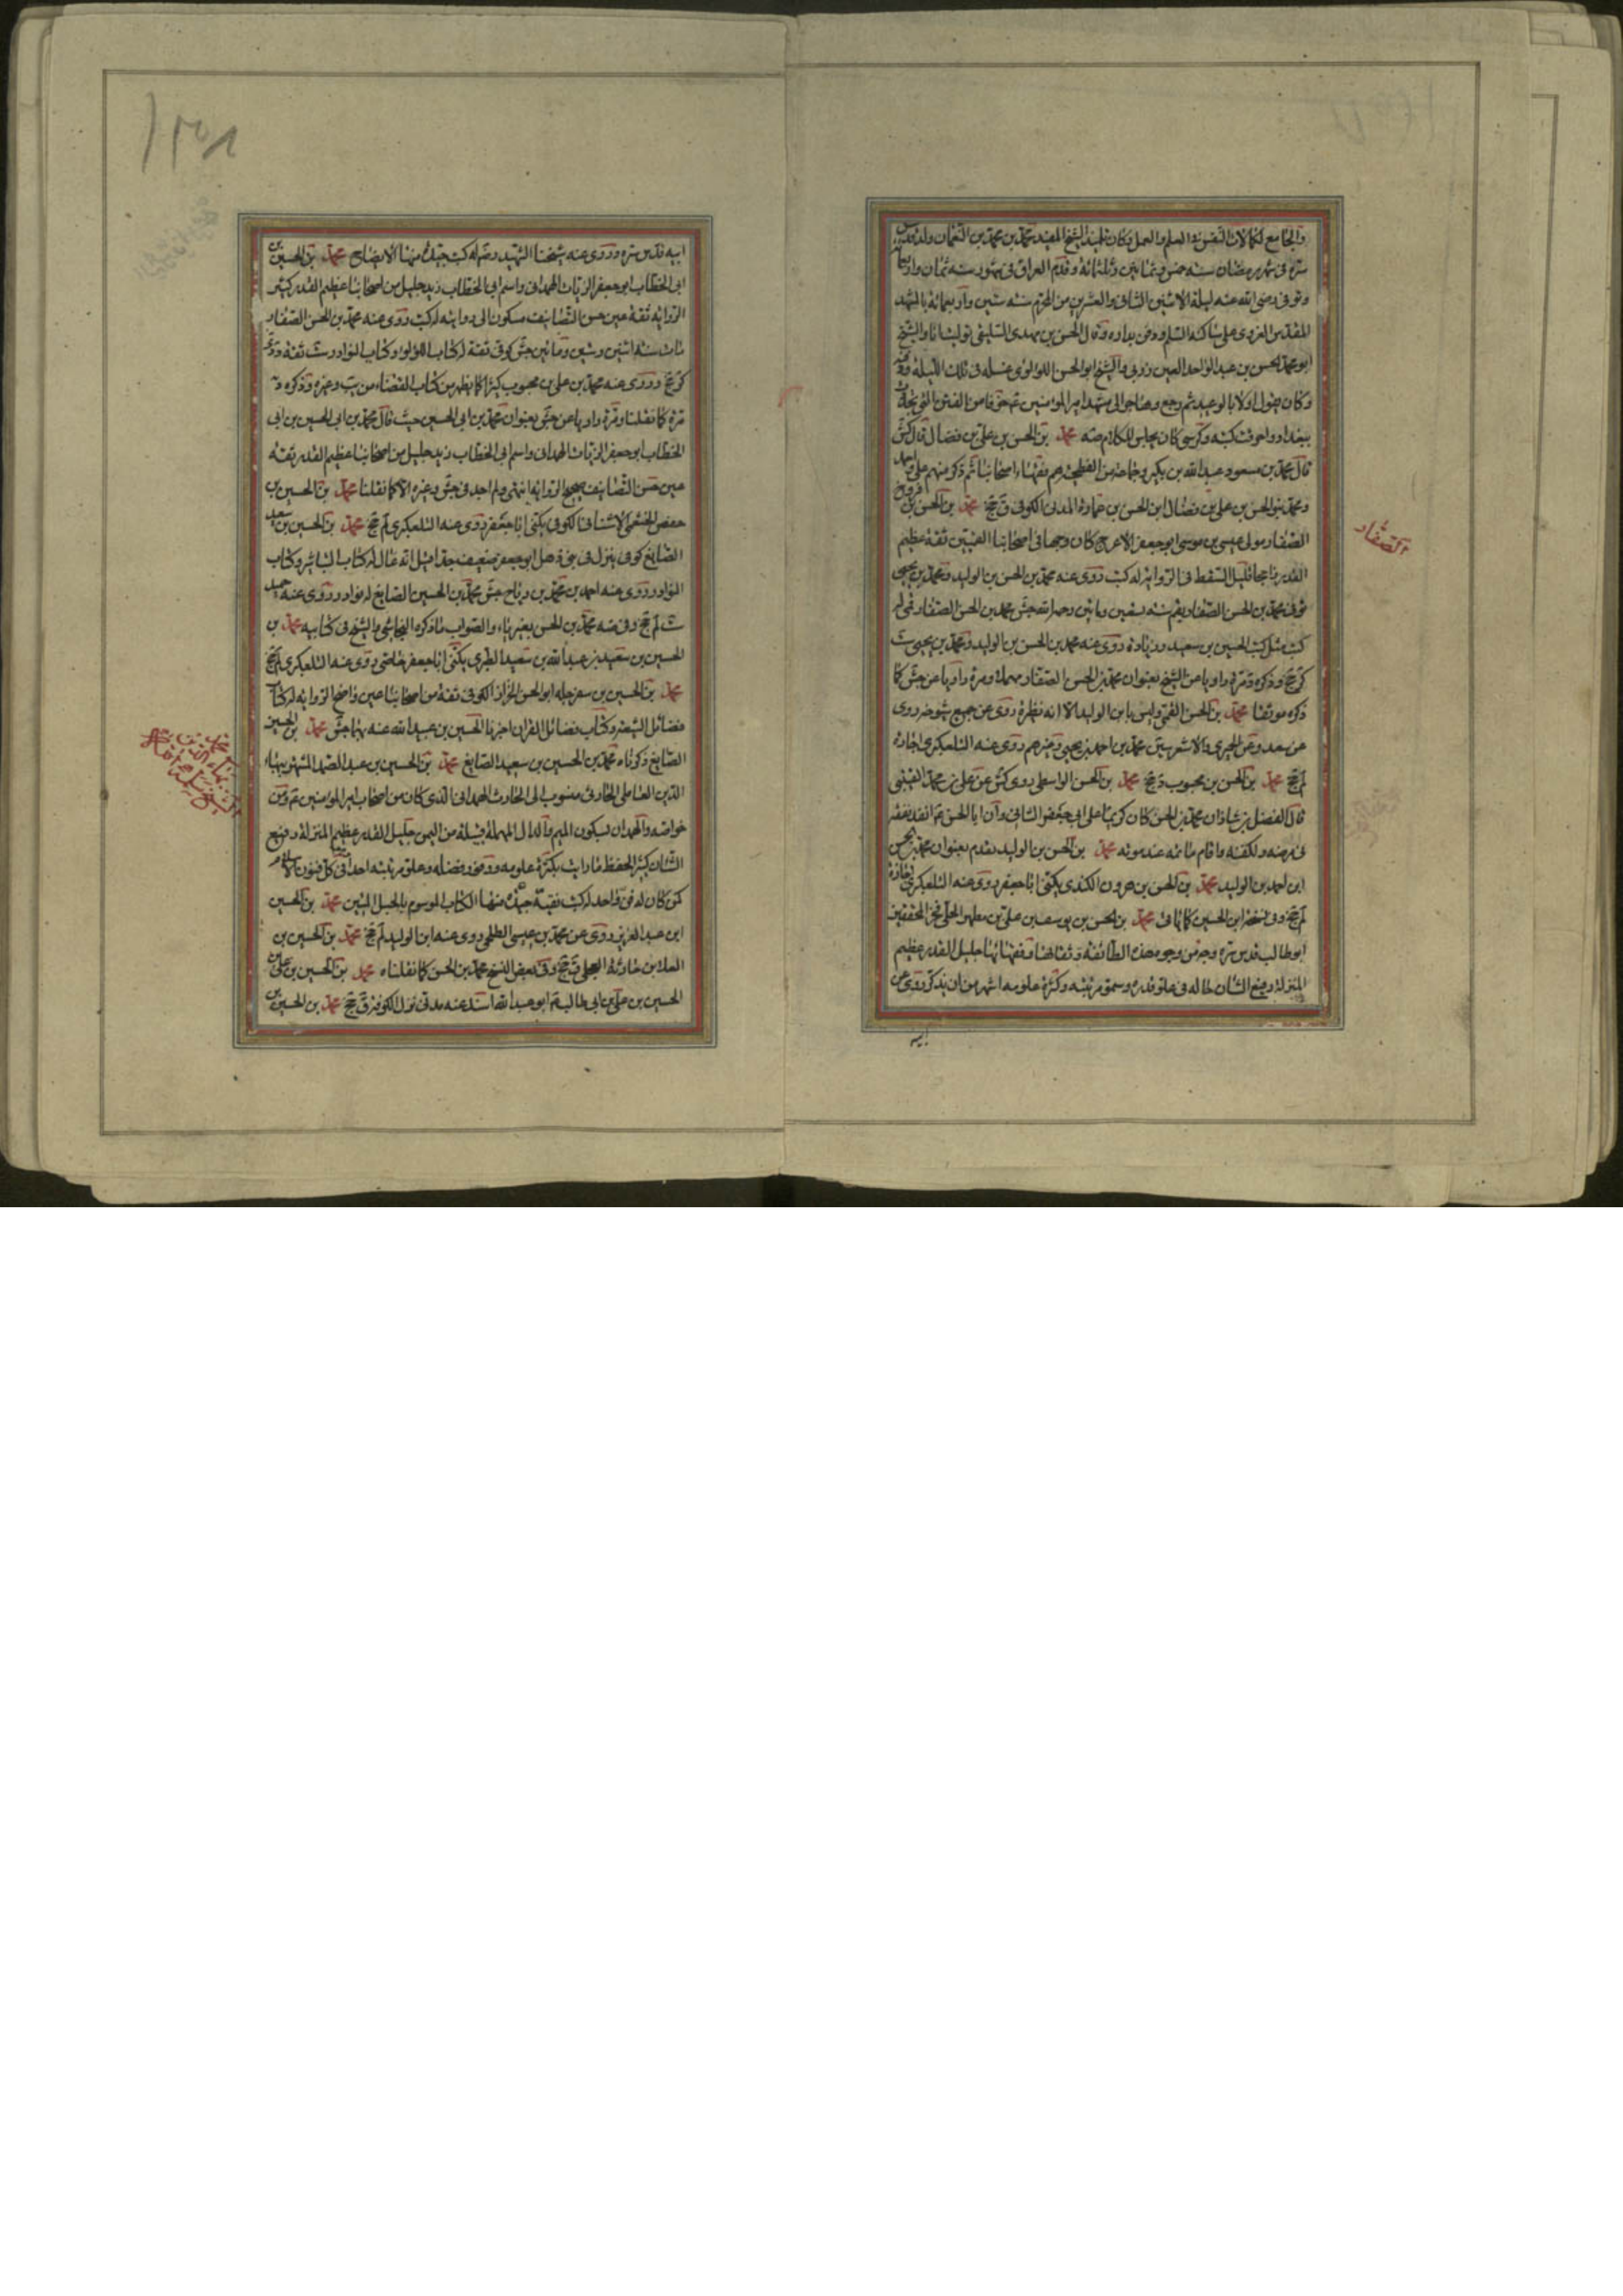 والجامع لكمالات النفس في العلم والعمل وكان تلميذ الشيخ المفيد محمد بن محمد بن النعمان ولد قدس
سره في شهر رمضان سنة خمس وثمانين وثلثمائة وقدم العراق في شهور سنة ثمان واربعمائة
وتوفي رضي الله عنه ليلة الاثنين الثاني والعشرين من المحرم سنة ستين واربعمائة بالمشهد
المقدس الغروي على ساكنه السلم ودفن بداره وقال الحسن بن مهدي السليقي توليت انا والشيخ
ابو محمد الحسن بن عبد الواحد العين زربي والشيخ ابو الحسن اللؤلؤي غسله في تلك الليلة ودفنه
وكان يقول اولا بالوعيد ثم رجع وهاجر الى مشهد امير المؤمنين ع خوفا من الفتن التي تجددت
ببغداد واحرقت كتبه وكرسي كان يجلس للكلام ضه محمد بن الحسن بن علي بن فضال قال كش
قال محمد بن مسعود عبد الله بن بكير وجماعة من الفطحية هم فقهاء اصحابنا ثم ذكر منهم علي واحمد
ومحمد بنو الحسن بن علي بن فضال ابن الحسن بن المدني الكوفي ق جخ محمد بن الحسن بن فروخ
الصفار مولى عيسى بن موسى ابو جعفر الاعرج كان وجها في اصحابنا القميين ثقة عظيم
القدر راجحا قليل السقط في الرواية له كتب روى عنه محمد بن الحسن بن الوليد ومحمد بن يحيى
توفي محمد بن الحسن الصفار بقم سنة تسعين ومائتين رحمه الله جش محمد بن الحسن الصفار قمي له
كتب مثل كتب الحسين بن سعيد وزيادة روى عنه محمد بن الحسن بن الوليد ومحمد بن يحيى ست
كر جخ وذكره د مرة راويا عن الشيخ بعنوان محمد بن الحسن الصفار مهملا ومرة راويا عن جش كما
ذكره موثقا محمد بن الحسن القمي وليس بابن الوليد الا انه نظيره روى عن جميع شيوخه روى
عن سعد وعن الحميري والاشعريين محمد بن احمد بن يحيى وغيرهم روى عنه التلعكبري اجازة
لم جخ محمد بن الحسن بن محبوب د جخ محمد بن الحسن الواسطي روى كش عن علي بن محمد القتيبي
قال الفضل بن شاذان محمد بن الحسن كان كريما على ابي جعفر الثاني وان ابا الحسن ع انفذ نفقته
في مرضه ولكفنه واقام ماتمه عند موته محمد بن الحسن بن الوليد تقدم بعنوان محمد بن الحسن
ابن احمد بن الوليد محمد بن الحسن بن هرون الكندي يكنى ابا جعفر روى عنه التلعكبري اجازة
لم جخ وفي نسخة ابن الحسين كما ياتي محمد بن الحسن بن يوسف بن علي بن مطهر الحلي فخر المحققين
ابو طالب قدس سره وجه من وجوه هذه الطائفة وثقاتها وفقهائها جليل القدر عظيم
المنزلة رفيع الشان حاله في علو قدره وسمو مرتبته وكثرة علومه اشهر من ان يذكر روى عن
ابيه
الصفار
١٣٥٨
ابيه قدس سره وروى عنه شيخنا الشهيد رضه له كتب جيدة منها الايضاح محمد بن الحسين بن
ابي الخطاب ابو جعفر الزيات الهمداني واسم ابي الخطاب زيد جليل من اصحابنا عظيم القدر كثير
الرواية ثقة عين حسن التصانيف مسكون الى روايته له كتب روى عنه محمد بن الحسن الصفار
مات سنة اثنين وستين ومائتين جش كوفي ثقة له كتاب اللؤلؤ وكتاب النوادر ست ثقة
كر جخ وروى عنه محمد بن علي بن محبوب كثيرا كما يظهر من كتاب القضاء من يب وغيره وذكره د
مرة كما نقلنا ومرة راويا عن جش بعنوان محمد بن ابي الحسين حيث قال محمد بن ابي الحسين بن ابي
الخطاب ابو جعفر الزيات الهمداني واسم ابي الخطاب زيد جليل من اصحابنا عظيم القدر ثقة
عين حسن التصانيف صحيح الرواية انتهى ولم اجد في جش وغيره الا كما نقلنا محمد بن الحسين بن
حفص الخثعمي الاشناني الكوفي يكنى ابا جعفر روى عنه التلعكبري لم جخ محمد بن الحسين بن سعيد
الصايغ كوفي ينزل في بني ذهل ابو جعفر ضعيف جدا قيل انه غال له كتاب التباشير وكتاب
النوادر روى عنه احمد بن محمد بن رباح جش محمد بن الحسين الصايغ له نوادر روى عنه حميد
ست لم جخ وفي ضه محمد بن الحسن بغير ياء والصواب ما ذكره النجاشي والشيخ في كتابيه محمد بن
الحسين بن سعيد بن عبد الله بن سعيد الطبري يكنى ابا جعفر خاصي روى عنه التلعكبري لم جخ
محمد بن الحسين بن سفرجله ابو الحسن الخزاز الكوفي ثقة من اصحابنا عين واضح الرواية له كتاب
فضائل الشيعة وكتاب فضائل القران اخبرنا الحسين بن عبيد الله عنه بهما جش محمد بن الحسين
الصايغ ذكرناه محمد بن الحسين بن سعيد الصايغ محمد بن الحسين بن عبد الصمد المشتهر ببهاء
الدين العاملي الحارثي منسوب الى الحارث الهمداني الذي كان من اصحاب امير المؤمنين ع ومن
خواصه والهمدان بسكون الميم والدال المهملة قبيلة من اليمن جليل القدر عظيم المنزلة رفيع
الشان كثير الحفظ ما رايت بكثرة علومه ووفور فضله وعلو مرتبته احدا في كل فنون الاسلام
كمن كان له فن واحد له كتب نفيسة جيدة منها الكتاب الموسوم بالحبل المتين محمد بن الحسين
ابن عبد العزيز روى عن محمد بن عيسى الطلحي روى عنه ابن الوليد لم جخ محمد بن الحسين بن
العلا بن حارثة البجلي ق جخ وفي بعض النسخ محمد بن الحسن كما نقلناه محمد بن الحسين بن علي بن
الحسين بن علي بن ابي طالب ع ابو عبد الله اسند عنه مدني نزل الكوفة ق جخ محمد بن الحسين بن